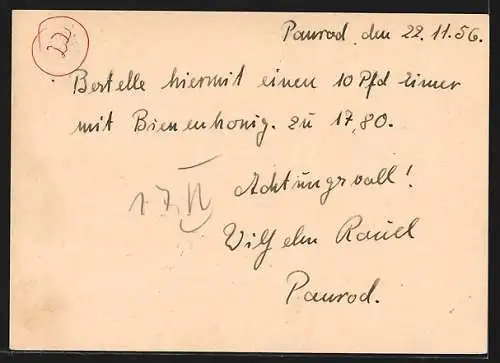 22.
Panrod, den 22.11.56.
Bestelle hiermit einen 10 Pfd Eimer
mit Bienenhonig. zu 17,80.
Achtungsvoll!
Wilhelm
Panrod.